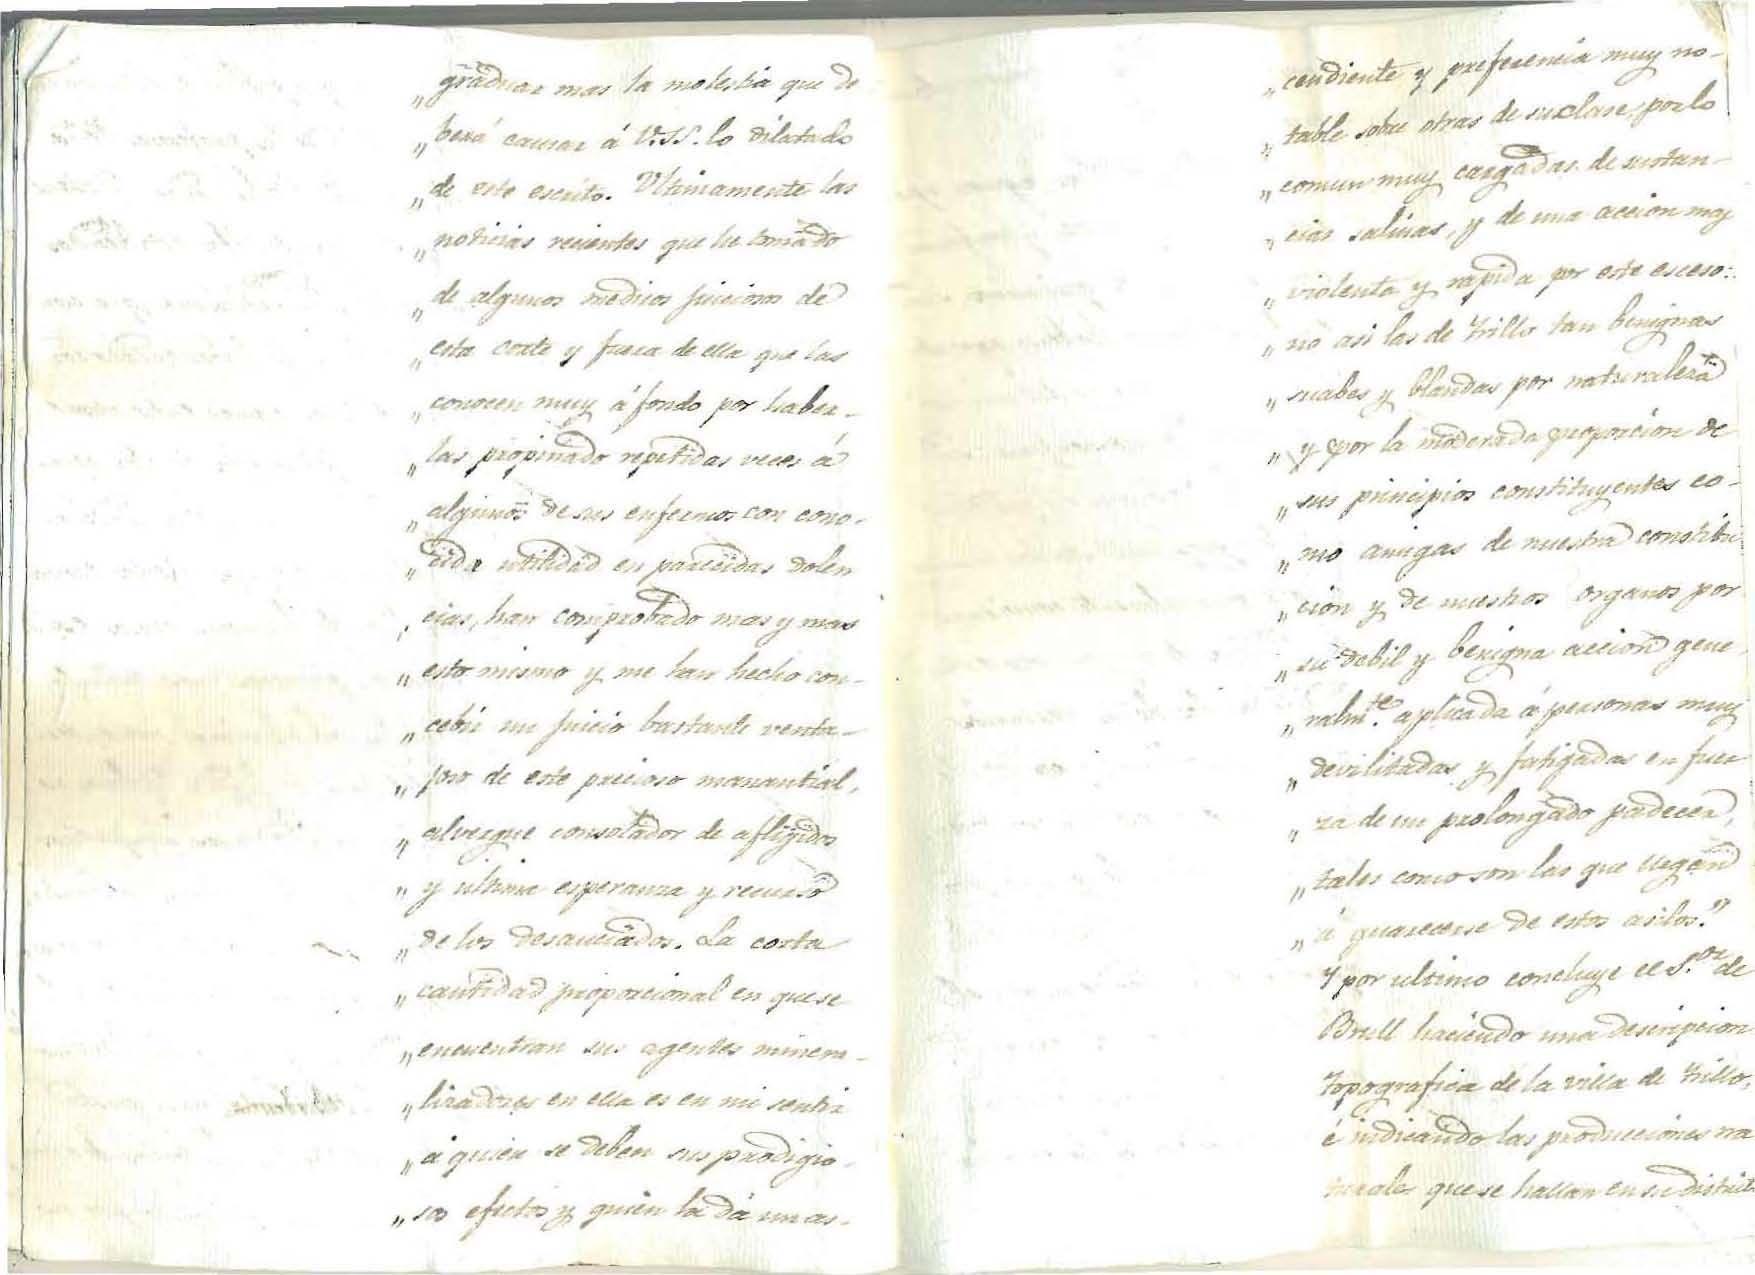 „graduar mas la molestia que de
„berá causar á V.SS. lo dilatado
„de este escrito. Ultimamente las
„noticias recientes que he tomado
„de algunos medicos juiciosos de
„esta corte y fuera de ella que las
„conocen muy á fondo por haber-
„las propinado repetidas veces á
„algunos de sus enfermos con cono-
„cida utilidad en parecidas dolen
„cias, han comprobado mas y mas
„esto mismo y me han hecho con-
„cebir un juicio bastante venta-
„joso de este precioso manantial,
„alvergue consolador de afligidos
„y ultima esperanza y recurso
„de los desauciados. La corta
„cantidad proporcional en que se
„encuentran sus agentes minera-
„lizadores en ella es en mi sentir
„á quien se deben sus prodigio-
„sos efectos y quien la dá un as-
„cendiente y preferencia muy no-
„table sobre otras de su clase, por lo
„comun muy cargadas de sustan-
„cias salinas, y de una accion muy
„violenta y rapida por este esceso:
„no asi las de Trillo tan benignas
„suabes y blandas por naturaleza
„y por la moderada proporcion de
„sus principios constituyentes co-
„mo amigas de nuestra constitu
„cion y de nuestros organos por
„su debil y benigna accion gene-
„ralm.te aplicada á personas muy
„devilitadas y fatigadas en fuer
„za de un prolongado padecer,
„tales como son las que llegan
„á guarecerse de estos asilos."
Y por ultimo concluye el S.or de
Brull haciendo una descripcion
topografica de la villa de Trillo,
é indicando las producciones na
turales que se hallan en su distrito